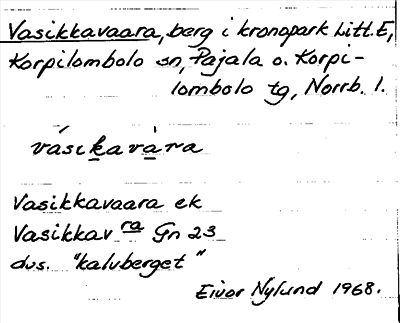 Vasikkavaara, berg i kronopark Litt. E,
Korpilombolo sn, Pajala o. Korpi-
lombolo tg, Norrb. l.
vásikavàra
Vasikkavaara ek
Vasikkav ra Gn 23
dvs. "kalvberget"
Eivor Nylund 1968.